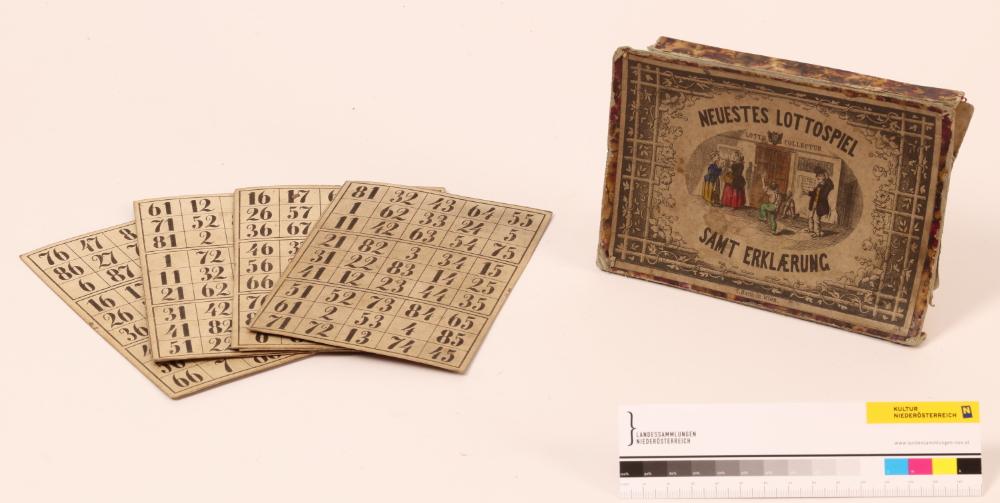 NEUESTES LOTTOSPIEL
LOTTO COLLECTUR
SAMT ERKLÆRUNG
76 47 8
86 27
6 87
16
26
36
66 7 66
61 12
71 52
81 2
1 72
11 32
21 62
31
41 82
51 22
16 17
26 57
36 67
46
56
66
76
86
6
81 32 43 64 55
1 62 33 24 5
11 42 63 54 75
21 82 3 34 15
31 22 83 14 25
41 12 23 44 35
51 52 73 84 65
61 2 53 4 85
71 72 13 74 45
LANDESSAMMLUNGEN
NIEDERÖSTERREICH
KULTUR
NIEDERÖSTERREICH
www.landessammlungen-noe.at